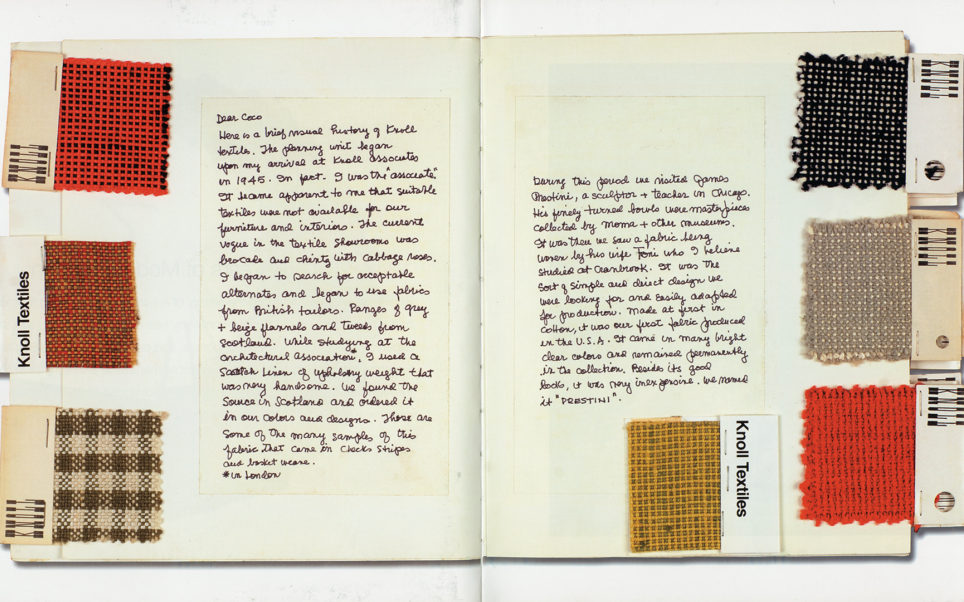 Dear Coco
Here is a brief visual history of Knoll
textiles. The planning unit began
upon my arrival at Knoll Associates
in 1945. In fact - I was the "associate."
It became apparent to me that suitable
textiles were not available for our
furniture and interiors. The current
vogue in the textile showrooms was
brocade and chintz with cabbage roses.
I began to search for acceptable
alternates and began to use fabrics
from British tailors. Ranges of grey
+ beige flannels and tweeds from
Scotland. While studying at the
architectural association*, I used a
Scottish linen of upholstery weight that
was very handsome. We found the
source in Scotland and ordered it
in our colors and designs. These are
some of the many samples of this
fabric that came in checks stripes
and basket weave.
*in London
Knoll Textiles
During this period we visited James
Prestini, a sculptor + teacher in Chicago.
His finely turned bowls were masterpieces
collected by Moma + other museums.
It was then we saw a fabric being
woven by his wife Toni who I believe
studied at Cranbrook. It was the
sort of simple and direct design we
were looking for and easily adapted
for production. Made at first in
cotton, it was our first fabric produced
in the U.S.A. It came in many bright
clear colors and remained permanently
in the collection. Besides its good
looks, it was very inexpensive. We named
it "PRESTINI".
Knoll Textiles
KNOLL
KNOLL
KNOLL
KNOLL